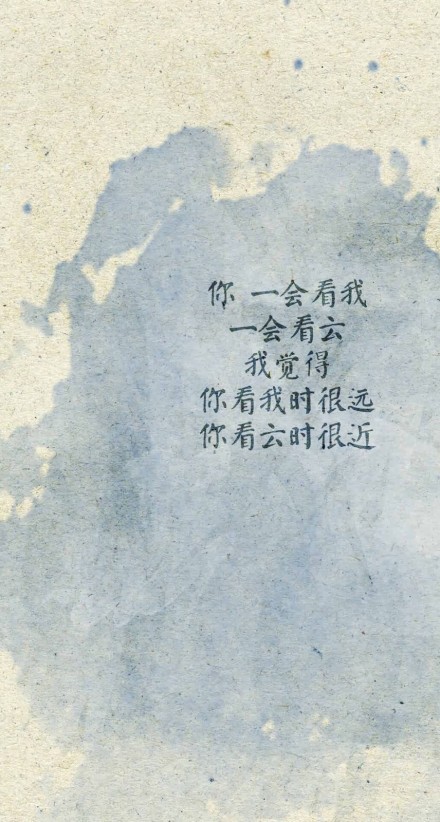 你 一会看我
一会看云
我觉得
你看我时很远
你看云时很近